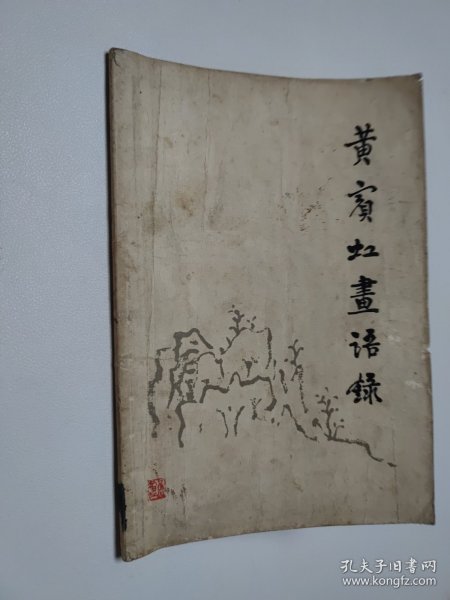 黄賓虹畫语錄
孔夫子旧书网
www.kongfz.com